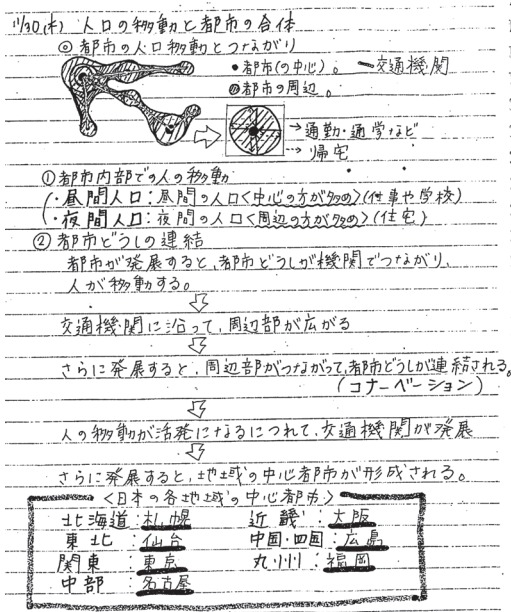 11/30(木) 人口の移動と都市の合体
◎都市の人口移動とつながり
●都市(の中心)。 ー交通機関
◍都市の周辺。
→通勤・通学など
⇢帰宅
①都市内部での人の移動
・昼間人口：昼間の人口〈中心の方が多め〉(仕事や学校)
・夜間人口：夜間の人口〈周辺の方が多め〉(住宅)
②都市どうしの連結
都市が発展すると、都市どうしが機関でつながり、
人が移動する。
⇩
交通機関に沿って、周辺部が広がる
⇩
さらに発展すると、周辺部がつながって、都市どうしが連結される。
(コナーベーション)
⇩
人の移動が活発になるにつれて、交通機関が発展
⇩
さらに発展すると、地域の中心都市が形成される。
〈日本の各地域の中心都市〉
北海道：札幌 近畿：大阪
東北：仙台 中国・四国：広島
関東：東京 九州：福岡
中部：名古屋